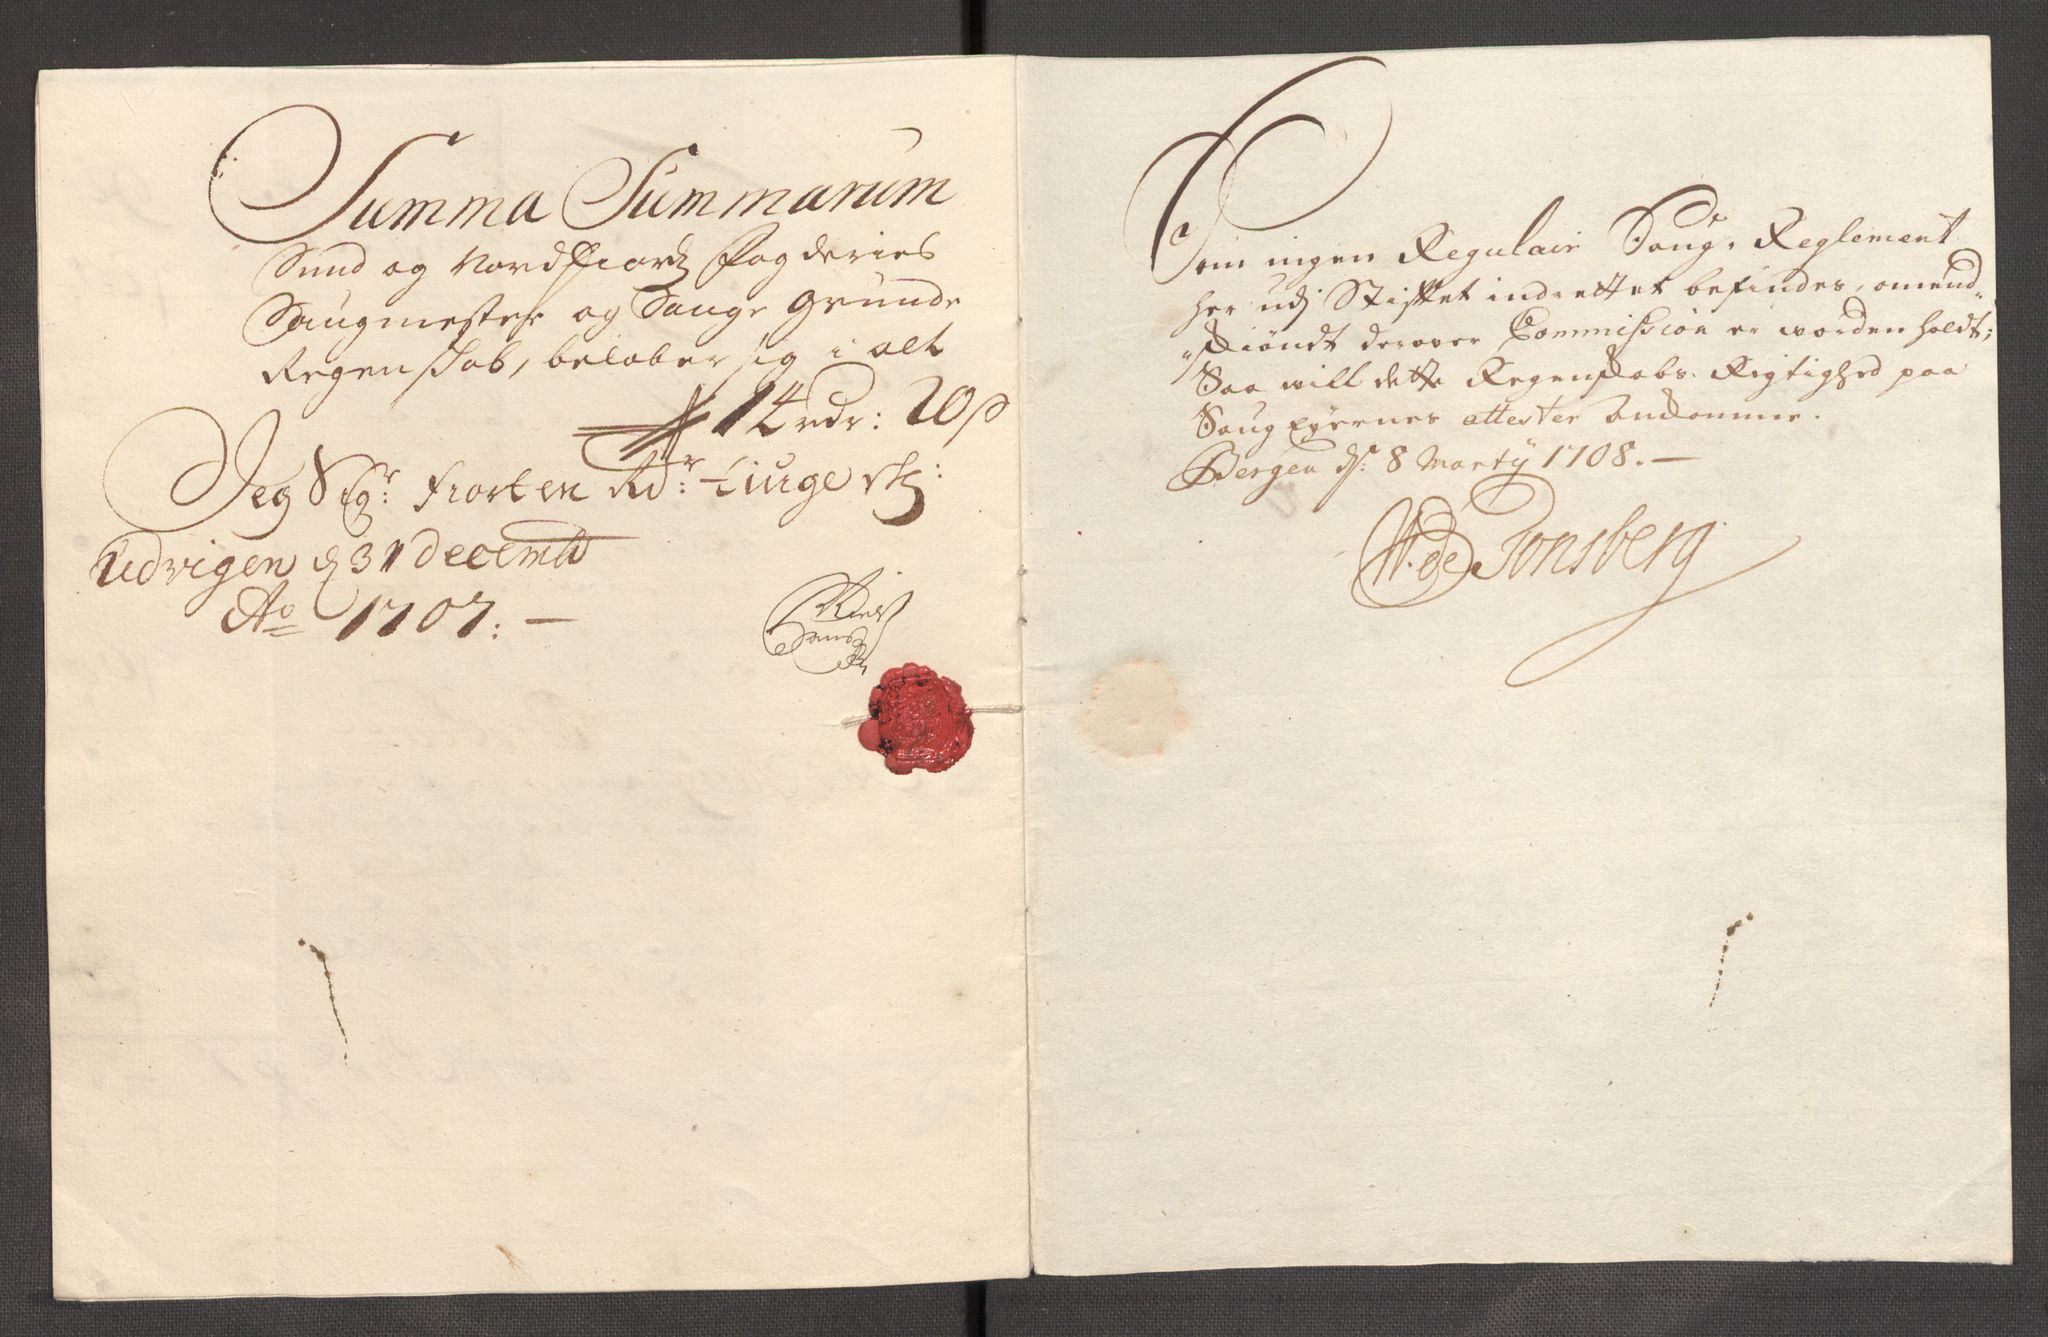 Summa Summarum
Sund og Nordfiords Fogderies
Saugmester og Sauge Grunde
Regenskab, beløber sig i alt
14 rdr: 20 s
Jeg Sigr. fiorten Rdr: tiuge sk:
Udvigen d 31 Decemb
Ao 1707. —
Niels
Som ingen Regulair Saug-Reglement
her udj Stiftet indrettet befindes, omend„
„skiøndt derover Commission er worden holdt;
Saa will dette Regenskabs Rigtighed paa
Saug Eyernes attester andkomme.
Bergen ds: 8 Marty 1708. —
W. de Tonsberg